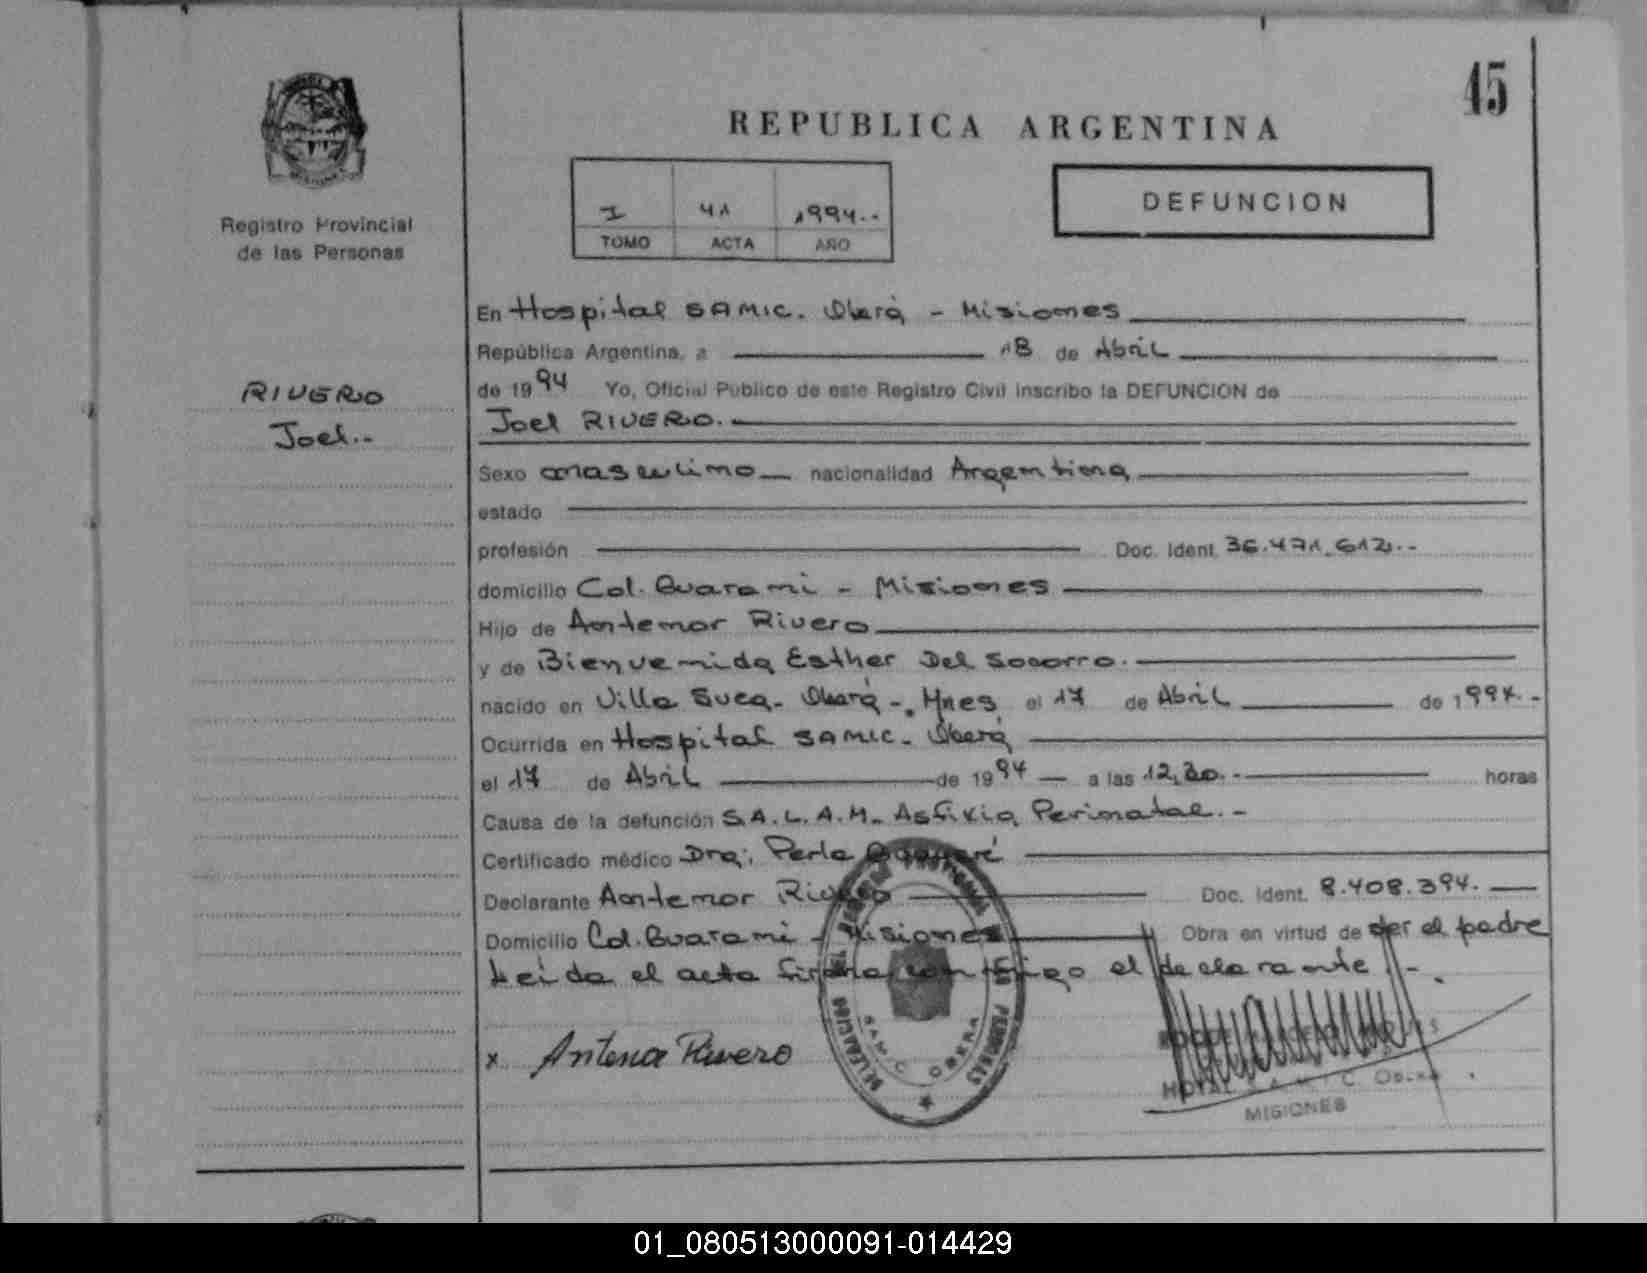 45
REPUBLICA ARGENTINA
I 41 1994.-
TOMO ACTA AÑO
DEFUNCION
Registro Provincial
de las Personas
RIVERO
Joel.-
En Hospital SAMIC. Oberá - Misiones
República Argentina, a 18 de Abril
de 1994 Yo, Oficial Público de este Registro Civil inscribo la DEFUNCION de
Joel RIVERO.
Sexo masculino nacionalidad Argentina
estado
profesión Doc. Ident. 36.471.612.-
domicilio Col. Guarani - Misiones
Hijo de Antemor Rivero
y de Bienvenida Esther Del Socorro.
nacido en Villa Sueca - Oberá -. Mnes el 17 de Abril de 1994.-
Ocurrida en Hospital SAMIC. Oberá
el 17 de Abril de 1994 a las 12,30.- horas
Causa de la defunción S.A.L.A.M. Asfixia Perinatal.-
Certificado médico Dra: Perla
Declarante Antemor Rivero Doc. Ident. 8.408.394.
Domicilio Col. Guarani - Misiones Obra en virtud de ser el padre
Leida el acta firma conmigo el declarante.-
x Antenor Rivero
SAMIC OBERA
MISIONES
01_080513000091-014429